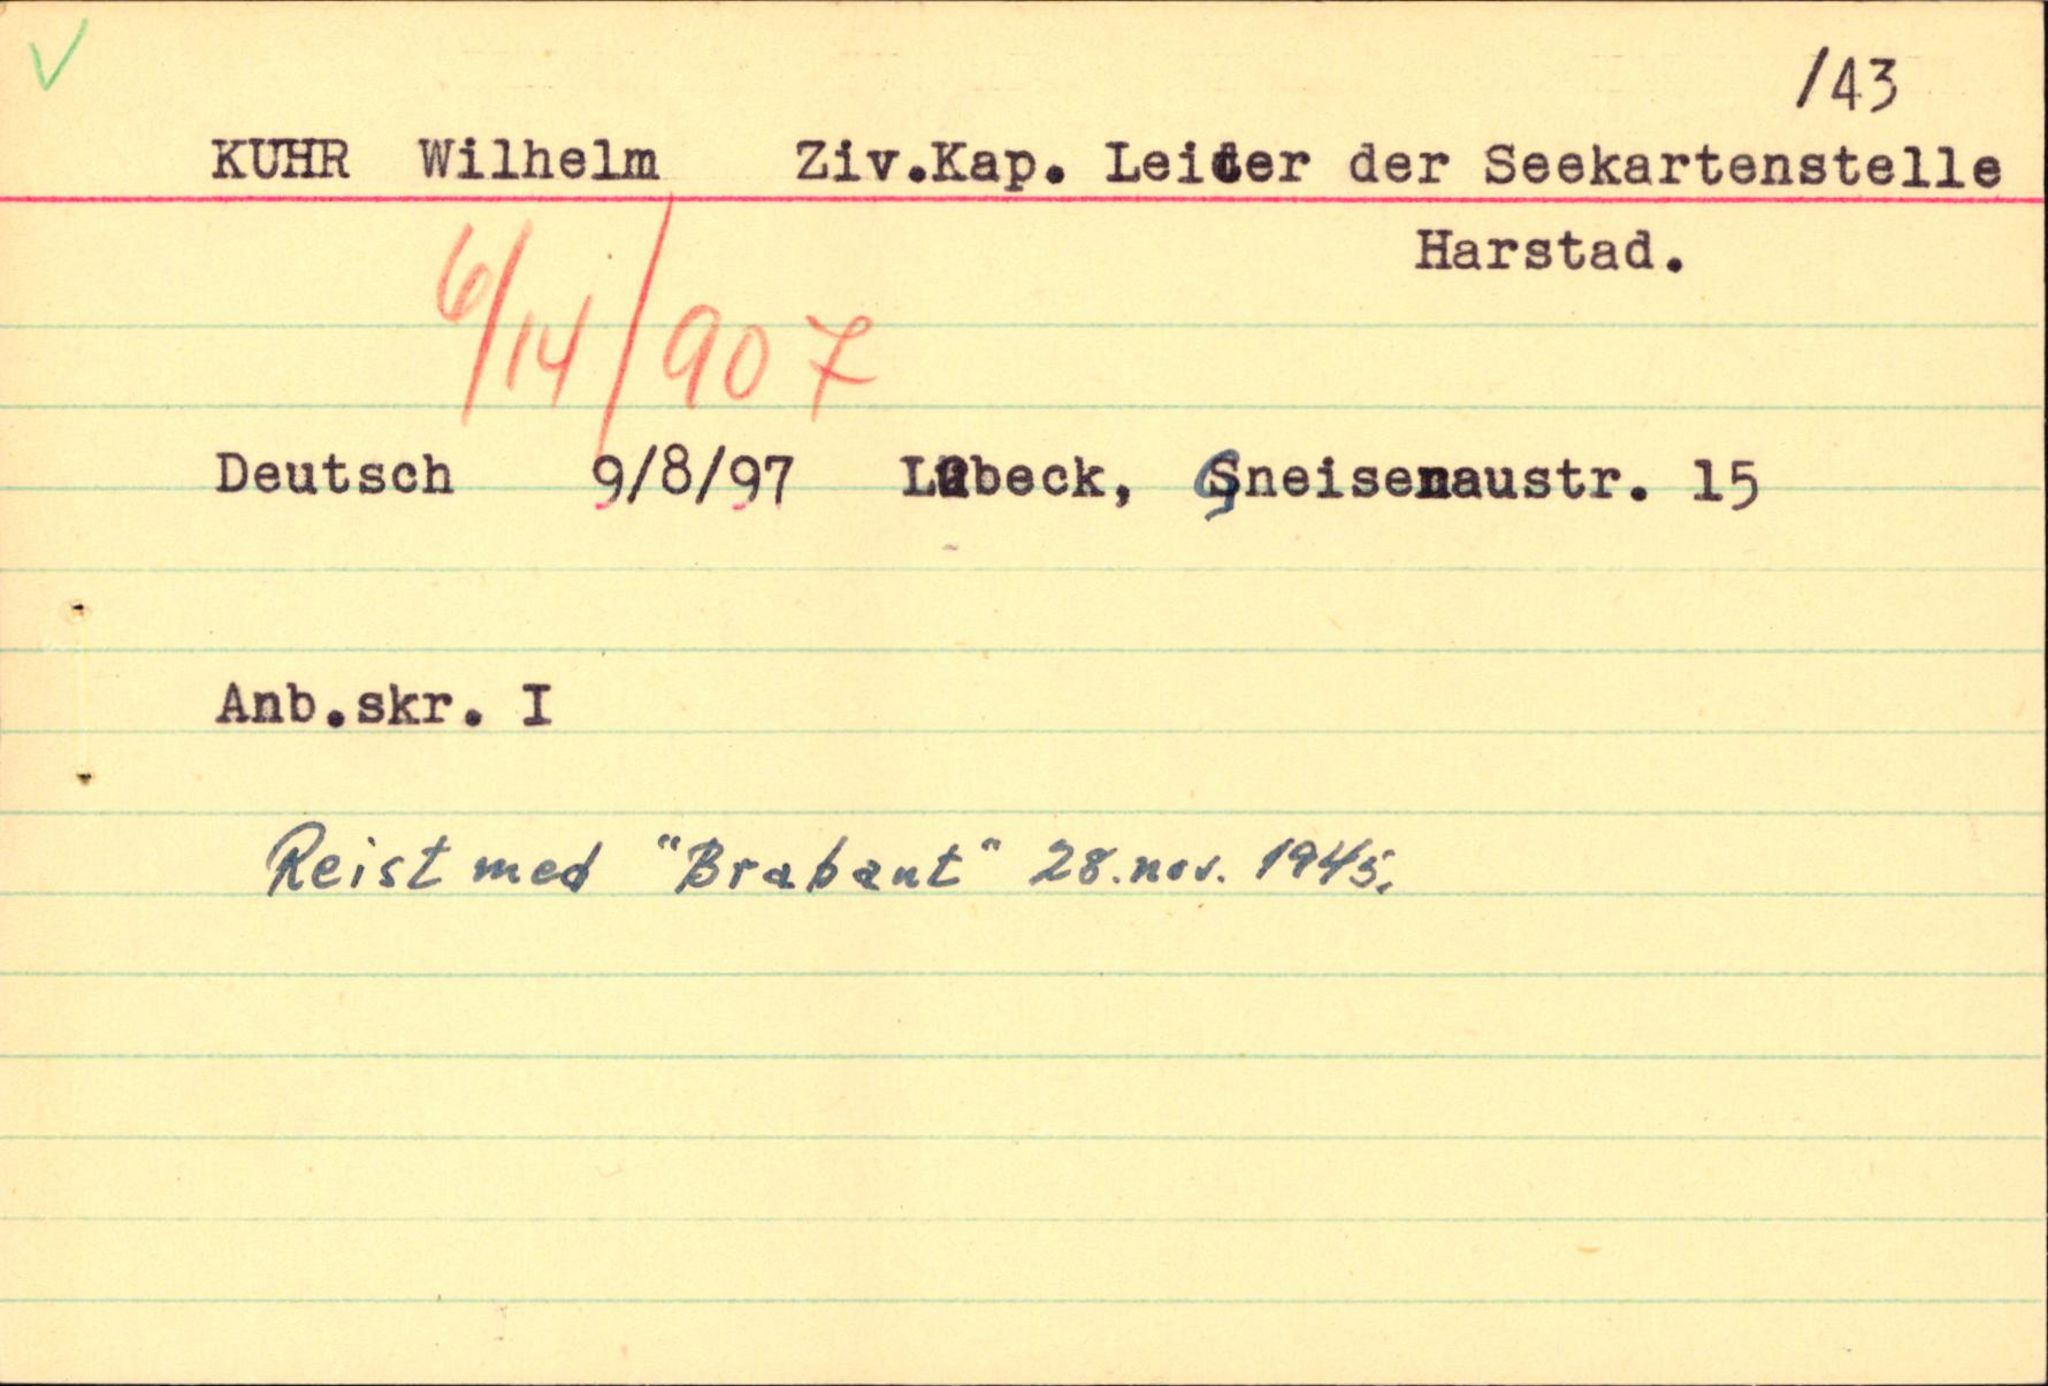 /43
KUHR Wilhelm Ziv.Kap. Leiter der Seekartenstelle
Harstad.
6/14/907
Deutsch 9/8/97 Lübeck, Gneisenaustr. 15
Anb.skr. I
Reist med "Brabant" 28. nov. 1945.